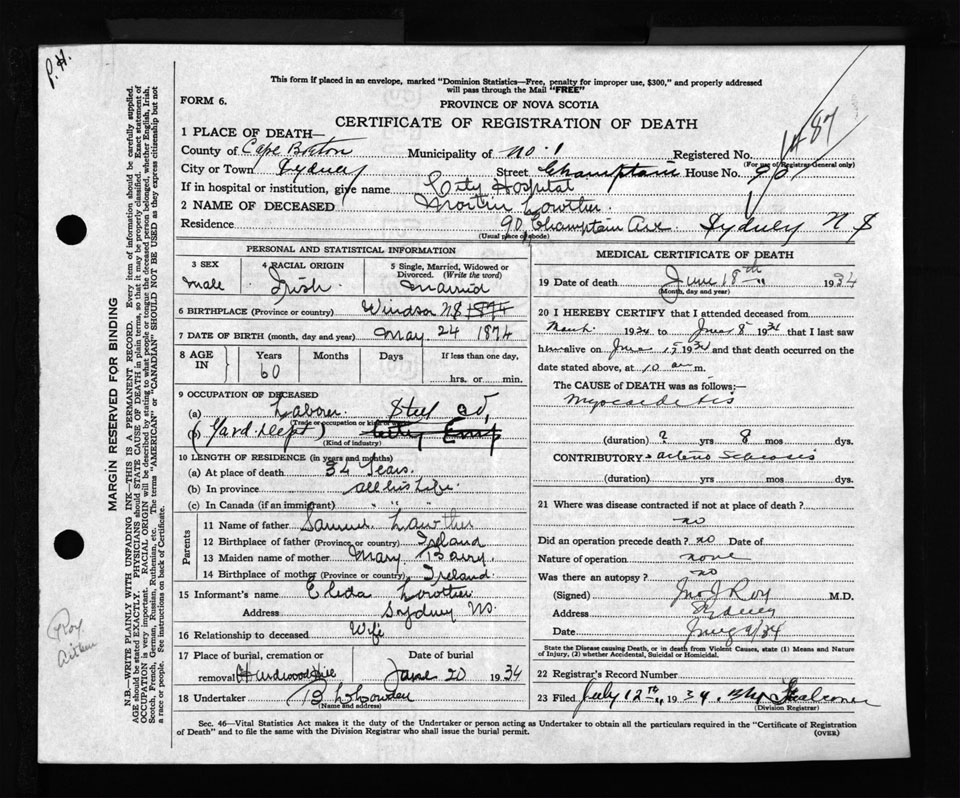 P. H.
This form if placed in an envelope, marked "Dominion Statistics—Free, penalty for improper use, $300," and properly addressed
will pass through the Mail "FREE"
FORM 6.
PROVINCE OF NOVA SCOTIA
CERTIFICATE OF REGISTRATION OF DEATH
1487
1 PLACE OF DEATH—
County of Cape Breton Municipality of No. 1 Registered No.
(For use of Registrar General only)
City or Town Sydney Street Champlain House No. 90
If in hospital or institution, give name City Hospital
2 NAME OF DECEASED Martin Lowther
Residence 90 Champlain Ave. Sydney N S
(Usual place of abode)
PERSONAL AND STATISTICAL INFORMATION
3 SEX 4 RACIAL ORIGIN 5 Single, Married, Widowed or
Divorced. (Write the word)
Male Irish Married
6 BIRTHPLACE (Province or country) Windsor NS
7 DATE OF BIRTH (month, day and year) May 24 1874
8 AGE IN Years Months Days If less than one day,
60 hrs. or min.
9 OCCUPATION OF DECEASED
(a) Laborer Steel Co,
(Trade occupation or kind of work)
(b) Yard. Dept)
(Kind of industry)
10 LENGTH OF RESIDENCE (in years and months)
(a) At place of death 34 Years.
(b) In province all his Life.
(c) In Canada (if an immigrant) " "
Parents
11 Name of father Samuel Lawther
12 Birthplace of father (Province or country) Ireland
13 Maiden name of mother Mary Barry.
14 Birthplace of mother (Province or country) Ireland.
15 Informant's name Lowther
Address Sydney NS.
16 Relationship to deceased Wife
17 Place of burial, cremation or Date of burial
removal Hardwood Hill June 20 1934
18 Undertaker
(Name and address)
MEDICAL CERTIFICATE OF DEATH
19 Date of death June 18th " 1934
(Month, day and year)
20 I HEREBY CERTIFY that I attended deceased from
March 1934 to June 8 1934 that I last saw
him alive on June 15 1934 and that death occurred on the
date stated above, at 10 am m.
The CAUSE of DEATH was as follows:—
Myocarditis
(duration) 2 yrs 8 mos dys.
CONTRIBUTORY arterio Sclerosis
(duration) yrs mos dys.
21 Where was disease contracted if not at place of death?
no
Did an operation precede death? no Date of
Nature of operation none
Was there an autopsy? no
(Signed) Jno J Roy M.D.
Address Sydney
Date /34
State the Disease causing Death, or in death from Violent Causes, state (1) Means and Nature
of Injury, (2) whether Accidental, Suicidal or Homicidal.
22 Registrar's Record Number
23 Filed July 12th, 1934.
(Division Registrar)
Sec. 46—Vital Statistics Act makes it the duty of the Undertaker or person acting as Undertaker to obtain all the particulars required in the "Certificate of Registration
of Death" and to file the same with the Division Registrar who shall issue the burial permit.
(OVER)
MARGIN RESERVED FOR BINDING
N.B.—WRITE PLAINLY WITH UNFADING INK—THIS IS A PERMANENT RECORD. Every item of information should be carefully supplied.
AGE should be stated EXACTLY. PHYSICIANS should STATE CAUSE OF DEATH in plain terms, so that it may be properly classified. Exact statement of
OCCUPATION is very important. RACIAL ORIGIN will be described by stating to what people or tongue the deceased person belonged, whether English, Irish,
Scotch, French, German, Russian, Ruthenian, etc. The terms "AMERICAN" or "CANADIAN" SHOULD NOT BE USED as they express citizenship but not
a race or people. See instructions on back of Certificate.
Roy
Aitken